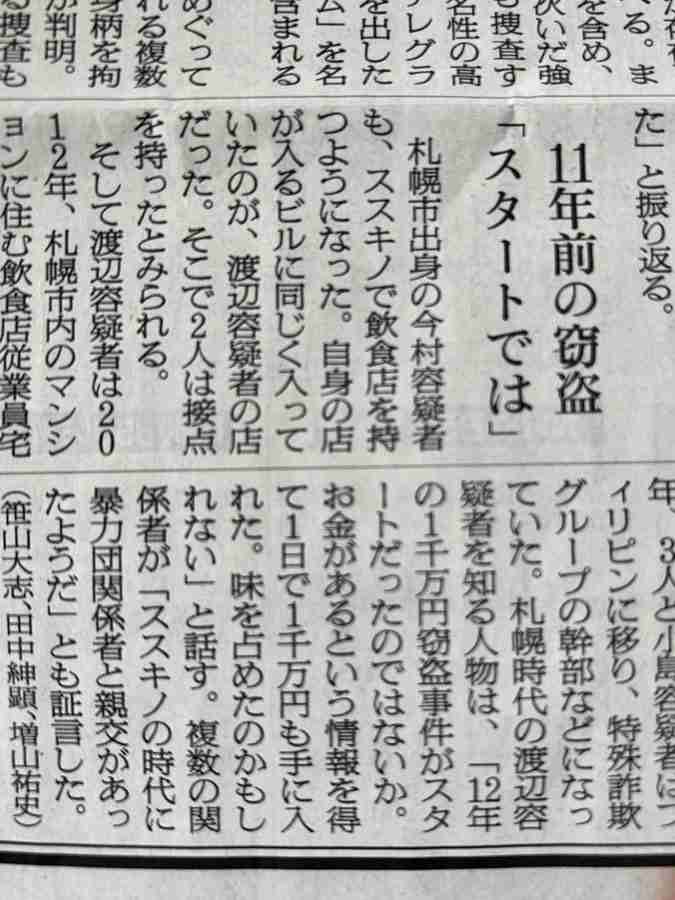 る。ま
を含め、
次いだ強
も捜査す
名性の高
レグラ
を出した
ム」を名
含まれる
めぐって
れる複数
身柄を拘
が判明。
る捜査も
た」と振り返る。
11年前の窃盗
「スタートでは」
札幌市出身の今村容疑者
も、ススキノで飲食店を持
つようになった。自身の店
が入るビルに同じく入って
いたのが、渡辺容疑者の店
だった。そこで2人は接点
を持ったとみられる。
そして渡辺容疑者は20
12年、札幌市内のマンシ
ョンに住む飲食店従業員宅
年、3人と小島容疑者はフ
ィリピンに移り、特殊詐欺
グループの幹部などになっ
ていた。札幌時代の渡辺容
疑者を知る人物は、「12年
の1千万円窃盗事件がスタ
ートだったのではないか。
お金があるという情報を得
て1日で1千万円も手に入
れた。味を占めたのかもし
れない」と話す。複数の関
係者が「ススキノの時代に
暴力団関係者と親交があっ
たようだ」とも証言した。
(笹山大志、田中紳顕、増山祐史)